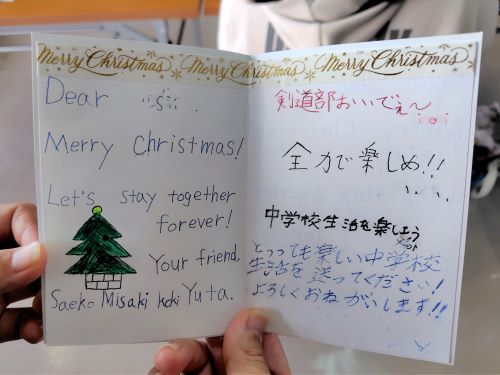 Merry Christmas Merry Christmas
Dear
Merry Christmas!
Let's stay together
forever!
Your friend,
Saeko Misaki koki Yuta.
Merry Christmas
剣道部おいでぇ〜
全力で楽しめ!!
中学校生活を楽しもう
とっっても楽しい中学校
生活を送ってください!
よろしくおねがいします!!